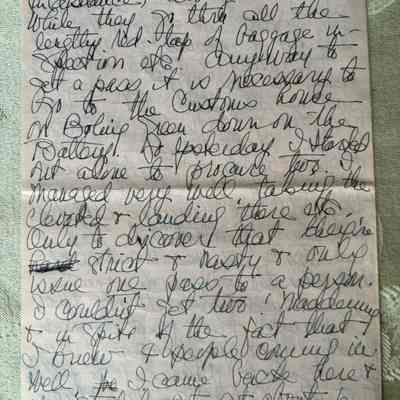 while they go thru all the
lengthy red tape of baggage in-
spection etc! Anyway to
get a pass, it is necessary to
go to the Customs house
on Boling Green down on the
Battery. So yesterday I started
out alone to procure two. I
managed very well taking the
elevated & landing there etc.
only to discover that they're
strict & nasty & only
issue one pass to a person.
I couldn't get two! Maddening
& in spite of the fact that
I knew 4 people coming in
Well I came back here &